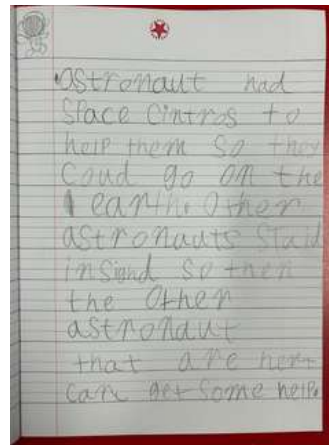 astronaut had
Space Cintros to
help them so they
Coud go on the
earth. Other
astronauts Staid
insignd so then
the Other
astronaut
that are hert
Can get some help.